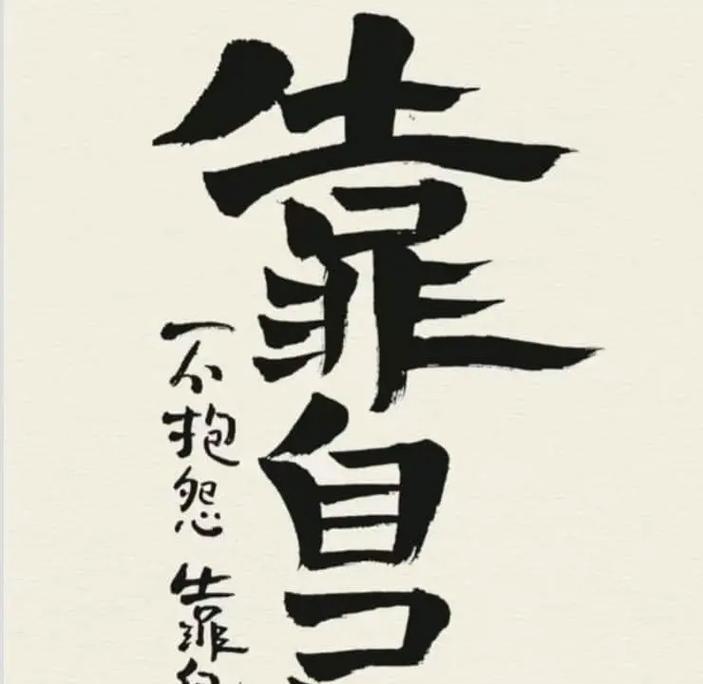 靠自己
不抱怨 靠自